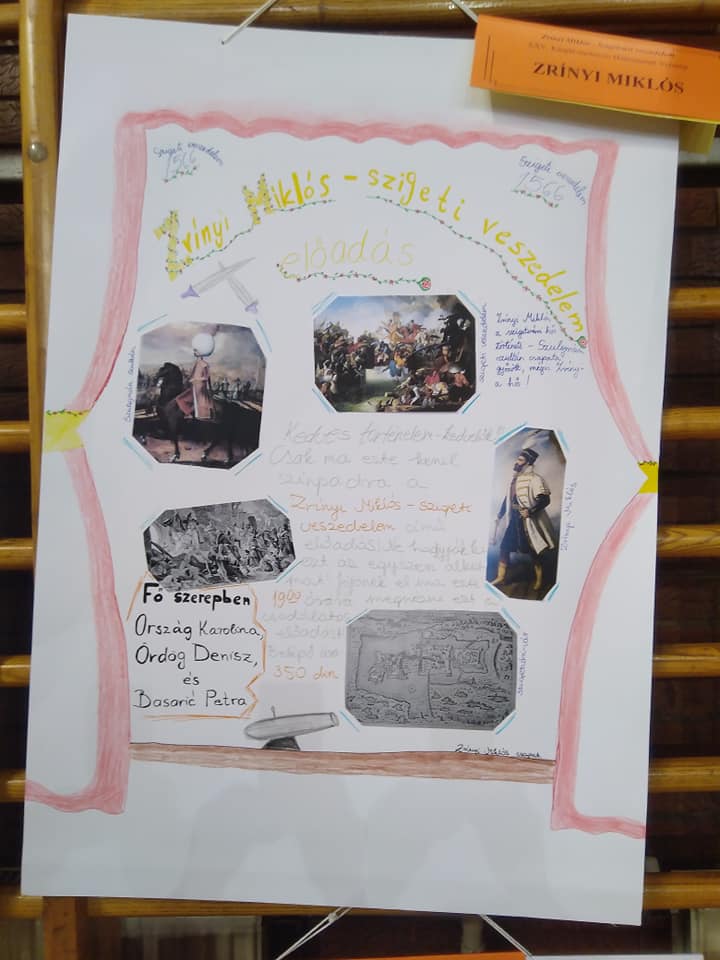 Zrínyi Miklós - Szigetvári veszedelem
XXV.
ZRÍNYI MIKLÓS
Szigeti veszedelem
1566
Szigeti veszedelem
1566
Zrínyi Miklós - szigeti veszedelem
előadás
Szulejmán szultán
szigeti veszedelem
Zrínyi Miklós
a szigetvári hős
története - Szulejmán
szultán csapata
győzött, mégis Zrínyi
a hős!
Kedves történelem-kedvelők!
Csak ma este kerül
színpadra a
Zrínyi Miklós - szigeti
veszedelem című
előadás! Ne hagyják ki
ezt az egyszeri alkalmat
jöjjenek el ma este
19⁰⁰ órára megnézni ezt a
csodálatos
előadást
Belépő ára
350 din
Zrínyi Miklós
Fő szerepben
Ország Karolina,
Ördög Denisz,
és
Basarić Petra
Szigetvári vár
Zrínyi Miklós csapat